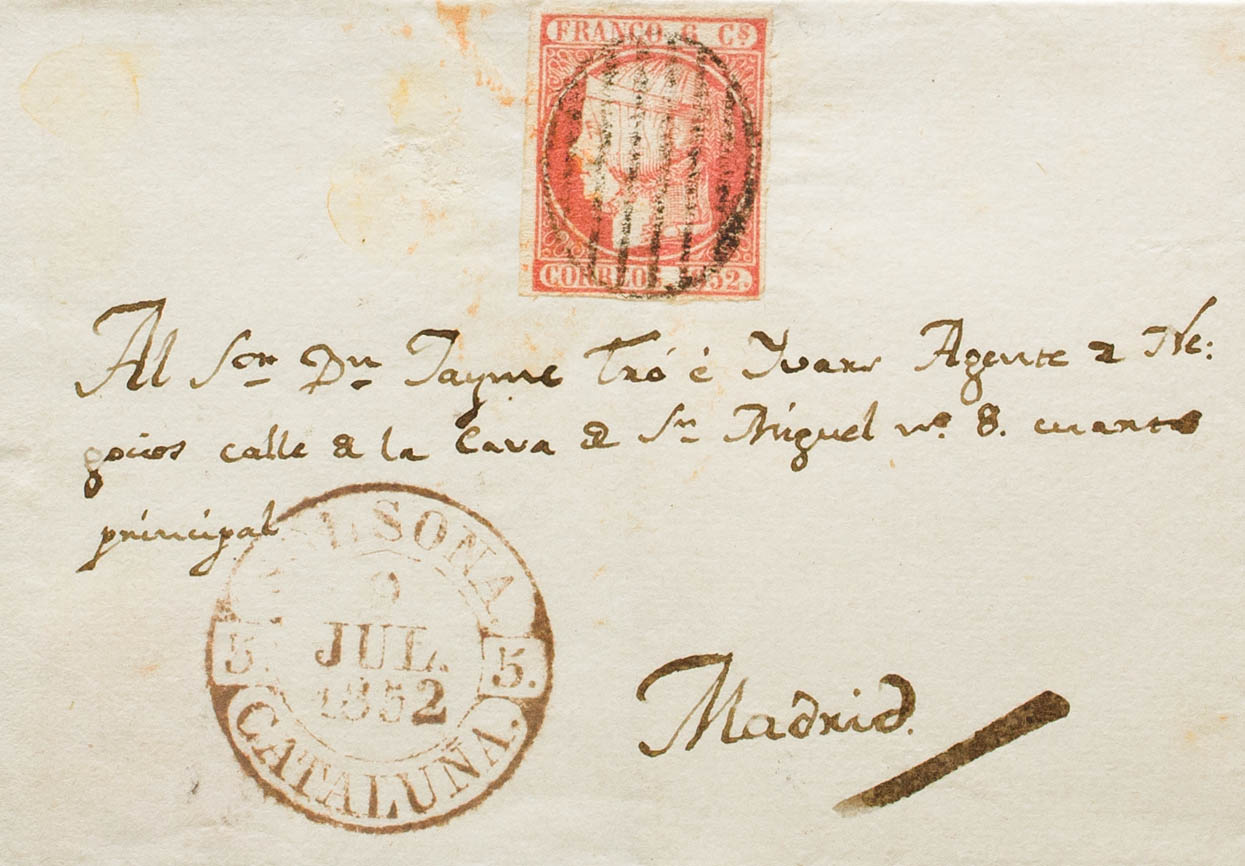 FRANCO 6 Cs
CORREOS 1852.
Al Sor. Dn. Jayme Tró é Yvars Agente de Ne:
gocios calle de la Cava de Sn. Miguel nº. 8. cuarto
principal
SOLSONA
9
JUL.
1852
5. 5.
CATALUÑA.
Madrid.